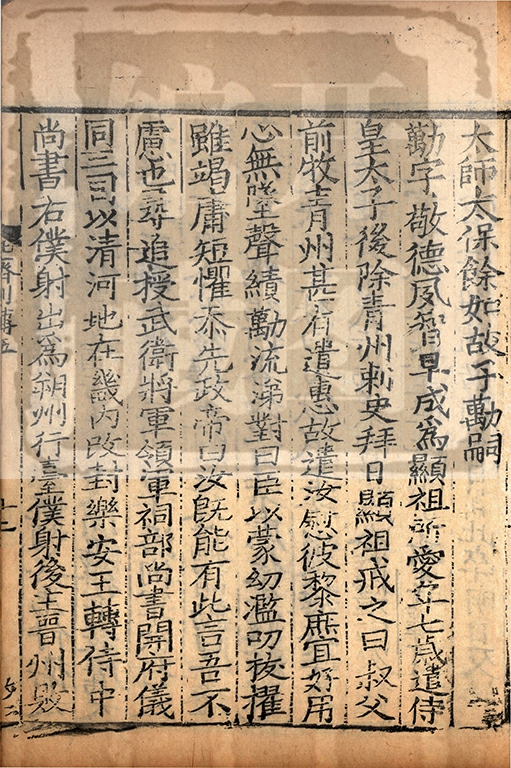 太師太保餘如故子勱嗣
勱字敬德夙智早成爲顯祖所愛年七歲遣侍
皇太子後除青州刺史拜日顯祖戒之曰叔父
前牧青州甚有遺惠故遣汝慰彼黎庶宜好用
心無墜聲績勱流涕對曰臣以蒙幼濫叨拔擢
雖竭庸短懼忝先政帝曰汝既能有此言吾不
慮也尋追授武衛將軍領軍祠部尚書開府儀
同三司以清河地在畿內改封樂安王轉侍中
尚書右僕射出爲朔州行臺僕射後主晉州敗
北齊列傳五
十二